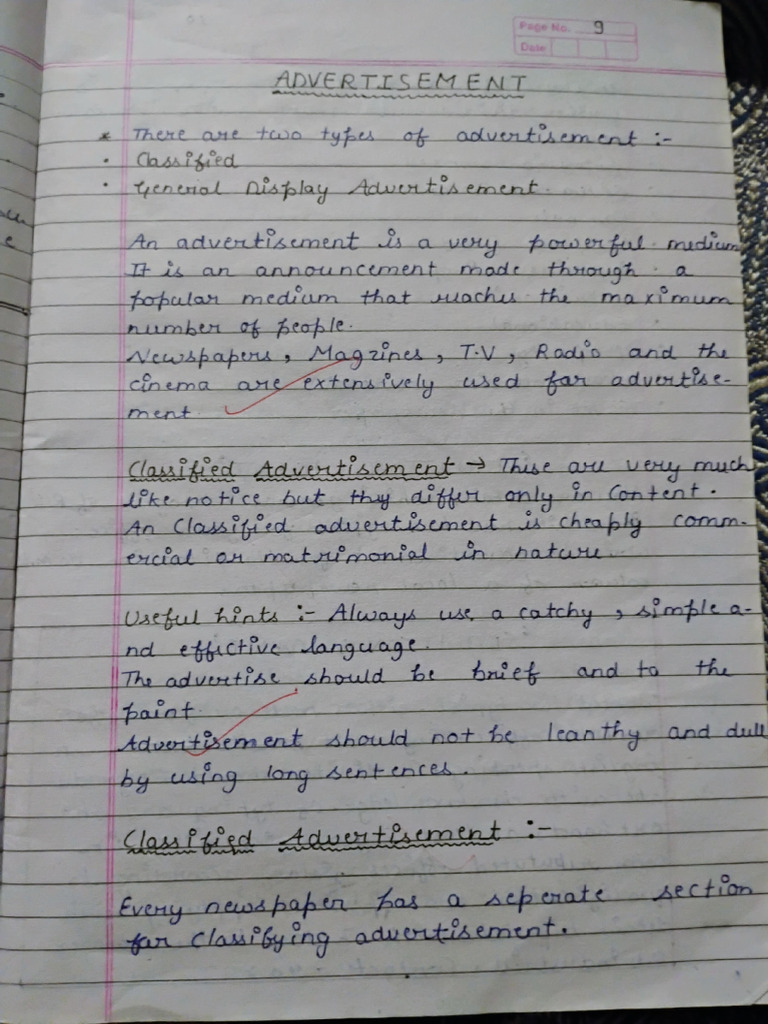 Page No. 9
Date
ADVERTISEMENT
* There are two types of advertisement :-
• Classified
• General Display Advertisement.
An advertisement is a very powerful medium
It is an announcement made through a
popular medium that reaches the maximum
number of people.
Newspapers, Magzines, T.V, Radio and the
cinema are extensively used for advertise-
ment
Classified Advertisement → These are very much
like notice but thy differ only in Content.
An Classified advertisement is cheaply comm-
ercial or matrimonial in nature
Useful hints :- Always use a catchy, simple a-
nd effective language.
The advertise should be brief and to the
point.
Advertisement should not be leanthy and dull
by using long sentences.
Classified Advertisement :-
Every newspaper has a seperate section
for Classifying advertisement.